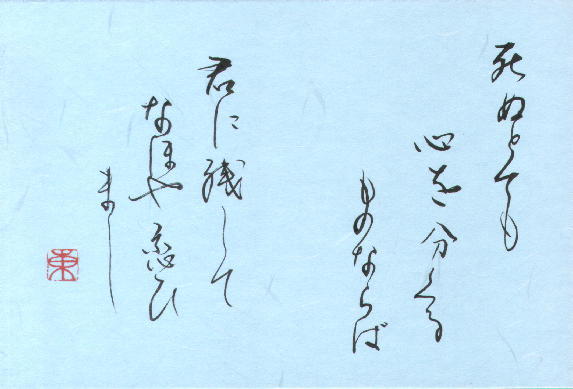 死ぬとても
心を分くる
ものならば
君に残して
なほや恋ひ
まし
東